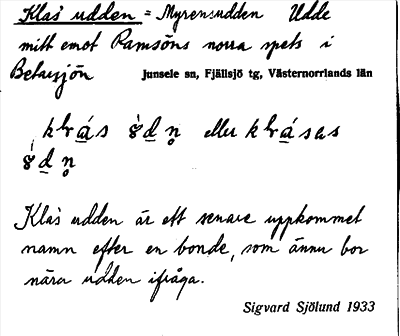 Klas' udden = Myrensudden Udde
mitt emot Ramsöns norra spets i
Betarsjön Junsele sn, Fjällsjö tg, Västernorrlands län
eller
Klas' udden är ett senare uppkommet
namn efter en bonde, som ännu bor
nära udden ifråga.
Sigvard Sjölund 1933